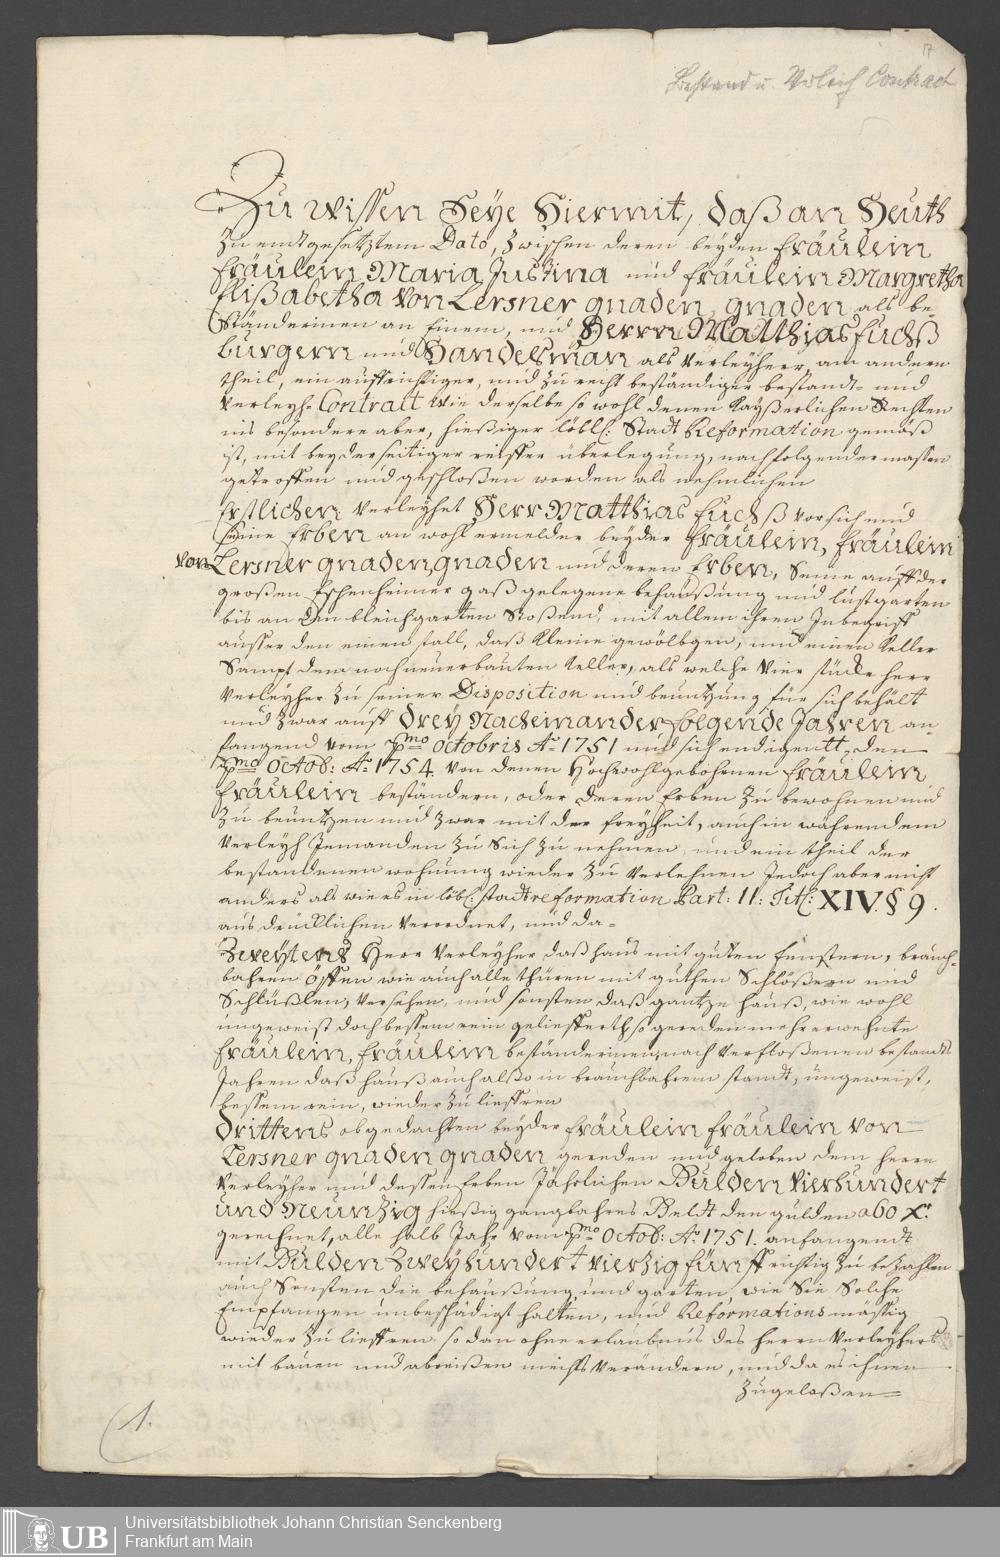 17
Bestand u. Verleih Contract
Zu wissen Seye Hiermit, daß an Heuth
zu endtgesetztem Dato, zwischen deren beyden Fräulein
Fräulein Maria Justina und Fräulein Margretha
Elißabetha von Lersner gnaden, gnaden als be-
ständerinen an Einem, und Herrn Matthias Fuchß
burgern und Handelsman als Verleyherr am andern
theil, ein auffrichtiger, und zu recht beständiger bestandt- und
Verleyh- Contract wie derselbe so wohl denen Kayßerlichen Rechten
ins besondere aber, hießiger löbl: Statt Reformation gemäß
ist, mit beyderseitiger reiffer überlegung, nachfolgender massen
getroffen und geschloßen worden als nehmlichen
Erstlichen Verleyhet Herr Matthias Fuchß vor sich und
seine Erben an wohl ermelder beyder Fräulein, Fräulein
von Lersner gnaden, gnaden und deren Erben, Seine auff der
großen Eschenheimer gaß gelegene behaußung und lustgarten
bis an den bleichgarten Stoßend, mit allem ihren Inbegriff
ausser den einen stall, daß kleine gewölbgen, und einen Keller
Sampt dem noch neuerbauten Keller, als welche Vier stücke herr
Verleyher zu seiner Disposition und benutzung für sich behält
und zwar auff drey Nacheinander folgende Jahren an-
fangend vom 1mo Octobris Ao 1751 und sich endigentt den
1mo Octob: Ao 1754 von denen Hochwohlgebohrnen Fräulein
Fräulein beständern, oder deren Erben zu bewohnen und
zu benutzen und zwar mit der freyheit, auch in währendem
Verleyh Jemanden zu Sich zu nehmen, und ein theil der
bestandenen wohnung wieder zu verlehnen Jedoch aber nicht
anders als wie es in löbl: stadtreformation Part: II: Tit: XIV. § 9.
ausdrücklichen Verordnet, und da-
Zweytens Herr Verleyher daß haus mit guten Fenstern, brauch-
bahren Öffen wie auch alle thüren mit guthen Schlößern und
Schlüßlen, Versehen, und sonsten daß gantze hauß, wie wohl
ungeweist doch bessem rein gelieffert, so gereden mehr erwehnte
Fräulein, Fräulein beständerinen, nach verfloßenen bestandts
Jahren daß hauß auch alßo in brauchbahrem standt, ungeweist,
bessem rein, wieder zu lieffren
Drittens obgedachten beyder Fräulein Fräulein von
Lersner gnaden gnaden gereden und geloben dem herrn
Verleyher und dessen Erben Jährlichen Gulden Vierhundert
und Neunzig hießig gangbahres Geldt den gulden a 60 Xr.
gerechnet, alle halb Jahr vom 1mo Octob: Ao 1751. anfangendt
mit Gulden Zweyhundert vierzig fünff richtig zu bezahlen
auch Sonsten die behaußung und garten, wie Sie Solche
Empfangen unbeschädigt halten, und Reformations mässig
wieder zu lieffren so dan ohne erlaubnus des herrn Verleyhers
mit bauen und abreißen nichts Verändern, und da es ihnen
zugelaßen
1.
UB
Universitätsbibliothek Johann Christian Senckenberg
Frankfurt am Main